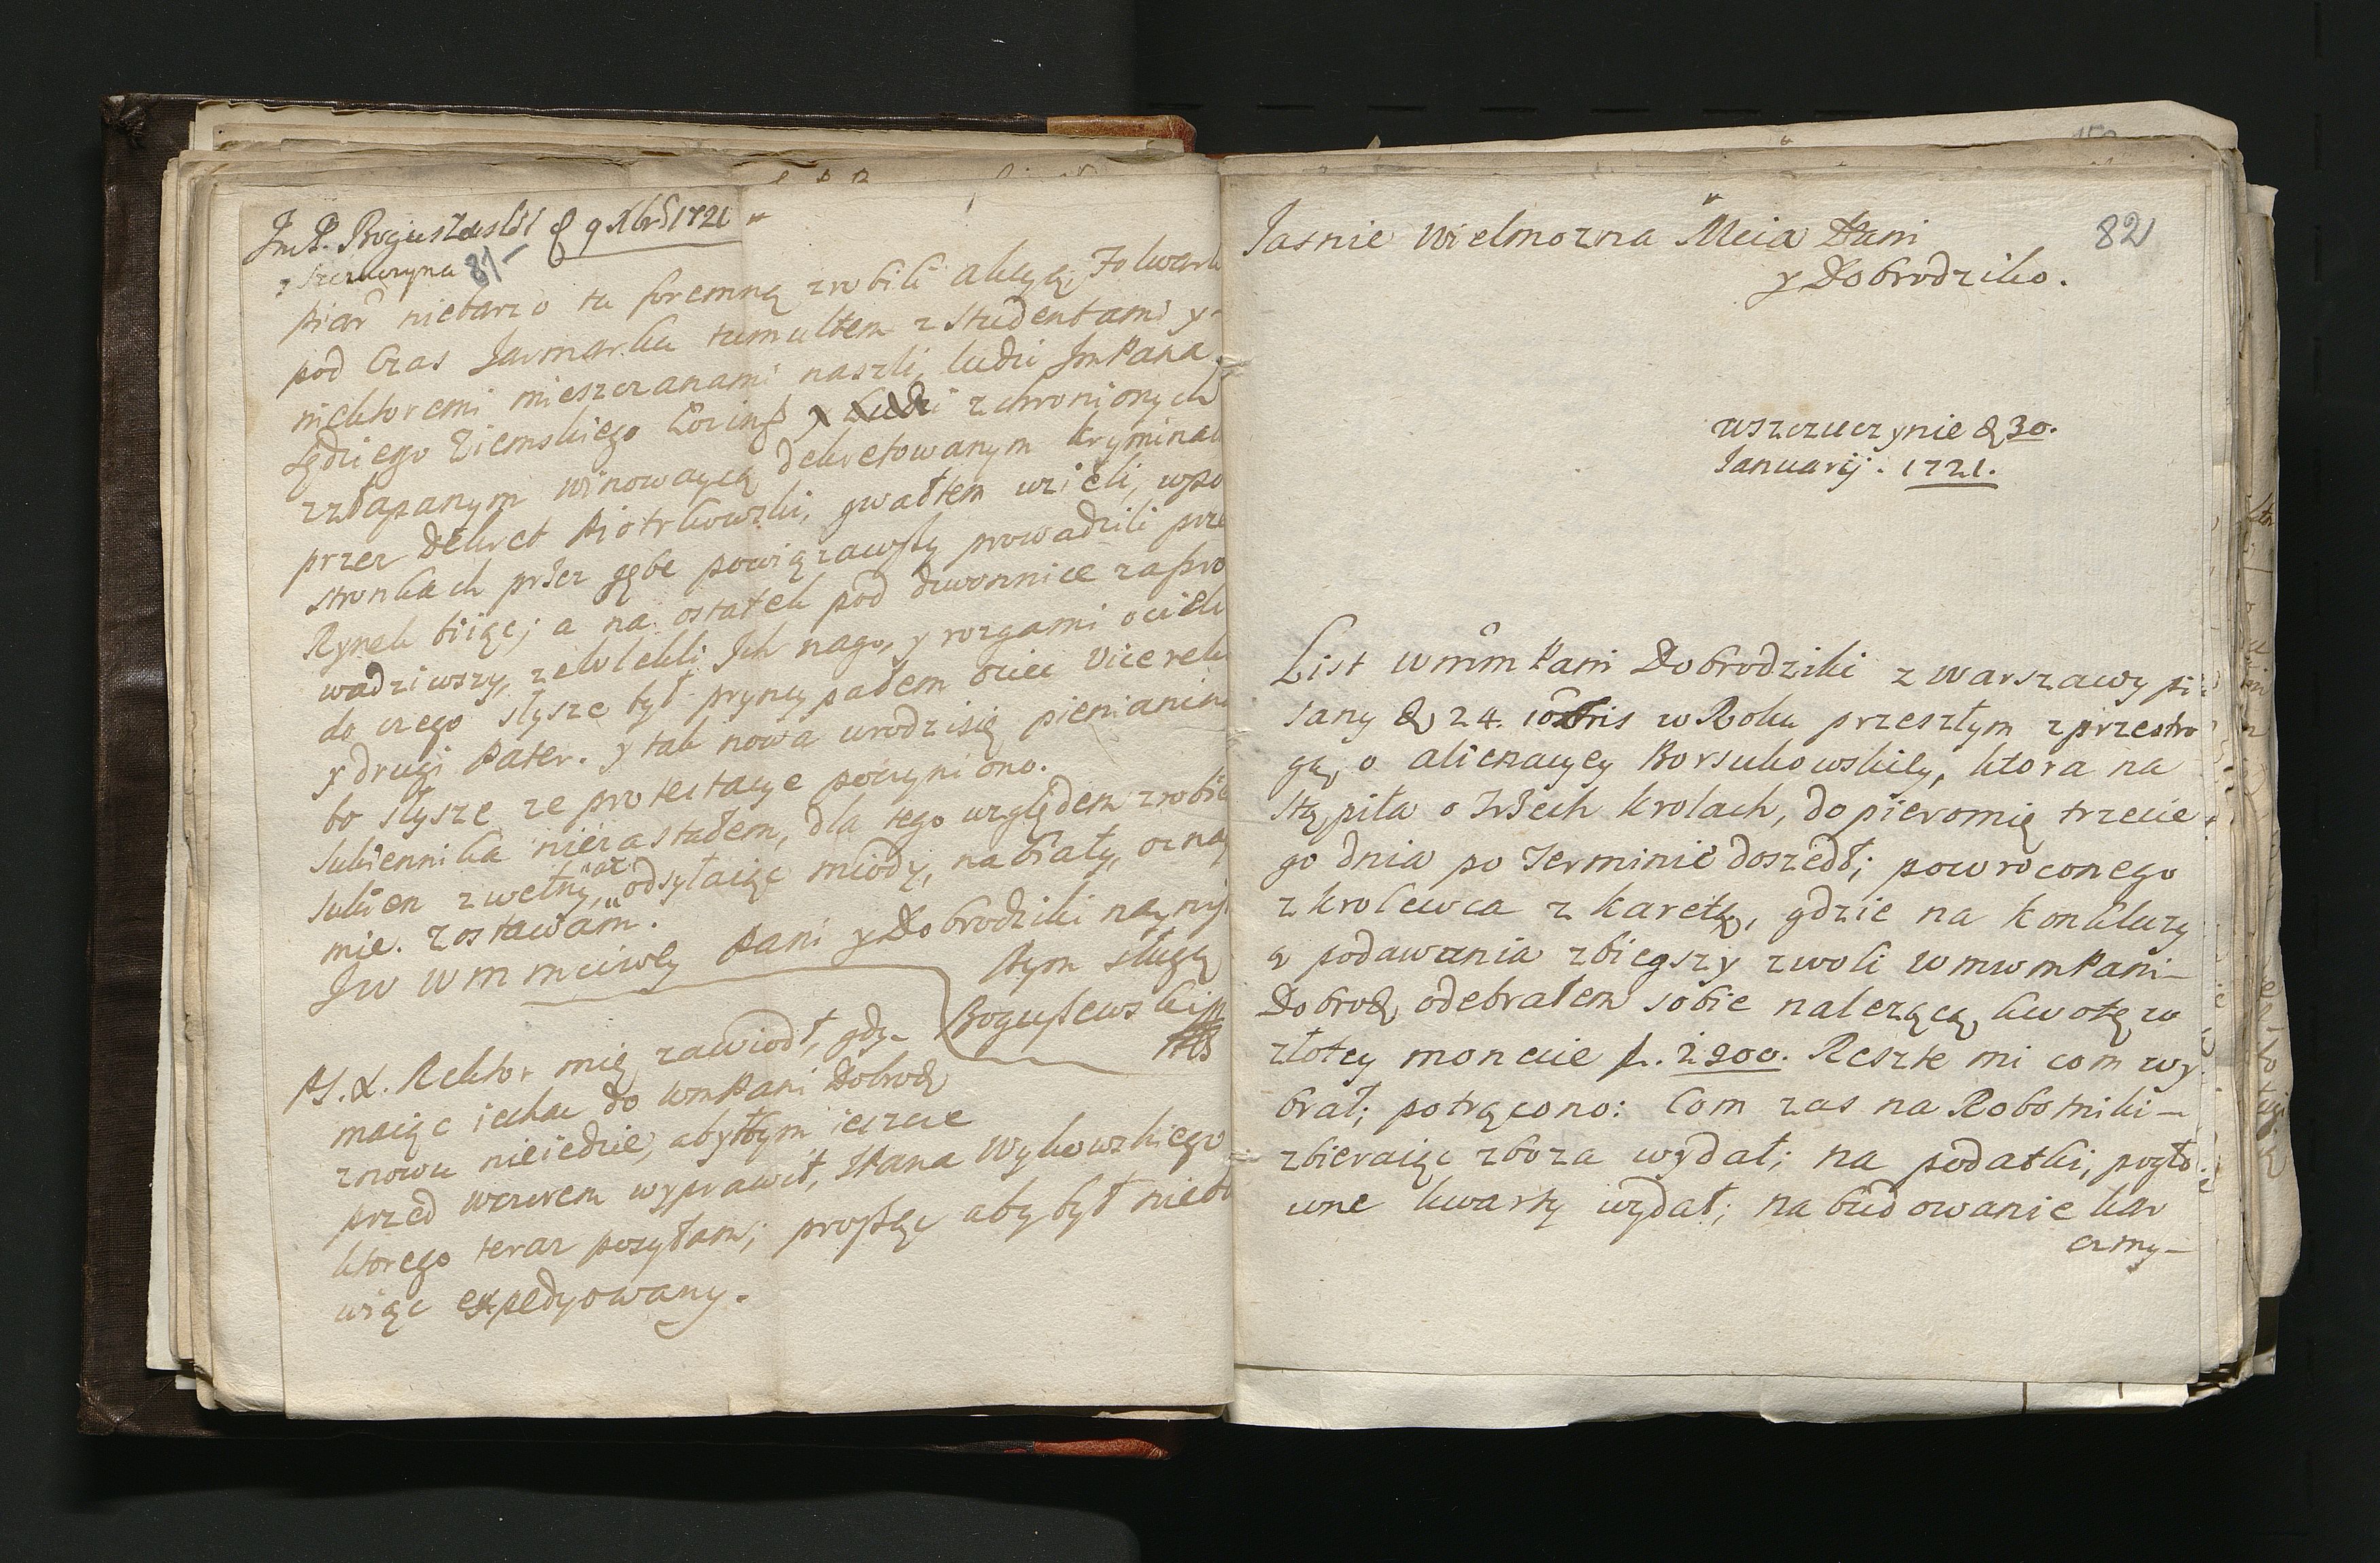 Im P. Boguszewski d 9 Xbris 1721
z Szczuczyna 81
piar niebarzo tu foremną zrobili akcyą, Folwark
pod Czas Jarmarku tumultem z Studentami y
niektoremi mieszczanami naszli, ludzi Jm Pana
Sędziego Ziemskiego zchronionych
zzłapanym winowaycą dekretowanym kryminal
przez Dekret Piotrkowski, gwałtem wzieli, wpo
stronkach przez gębe powiązawszy prowadzili prze
Rynek biiąc; a na ostatek pod dzwonnice zapro
wadziwszy, zewlekli Ich nago, y rozgami ociek
do czego słysze był pryncypałem ociec Vicerek
y drugi Pater. y tak nowa urodzisię pienianina
bo słysze ze protestacye poczyniono.
Sukiennika niezastałem, dla tego względem zrobie
Sukien zwełny, odsyłaiąc miody, nabrały, oznay
mie. zostawam.
JW WM mciwey Pani y Dobrodziki nayniż
szym sługą
Boguszewski
PS. X. Rektor mię zawiodł, gdy
maiąc iechac do WmPani Dobrodz
znowu nieiedzie, abyłbym ieszcze
przed wczorem wyprawił, JPana Wykowskiego
ktorego teraz posyłam; proszęc aby był nieba
wiąc expedyowany.
Jasnie Wielmozna Mcia Pani
82
y Dobrodziko.
wszczuczynie d 30.
Januarij. 1721.
List wmm Pani Dobrodziki z Warszawy pi
sany d 24. 10bris w Roku przeszłym z przestro
gą, o alienacyey Borsukowskiey, ktora na
stąpiła o Trzech krolach, dopieromię trzecie
go dnia po Terminie doszedł; powroconego
z krolewca z karetą, gdzie na konkluzy
ą podawania zbiegszy zwoli wmwmPani
Dobrodz odebrałem sobie nalezącą kwotę w
złotey monecie f. 2900. Reszte mi com wy
brał; potrącono: Com zas na Robotniki
zbieraiąc zboza wydał; na podatki, pogło
wne kwarty wydał; na budowanie kar
czmy